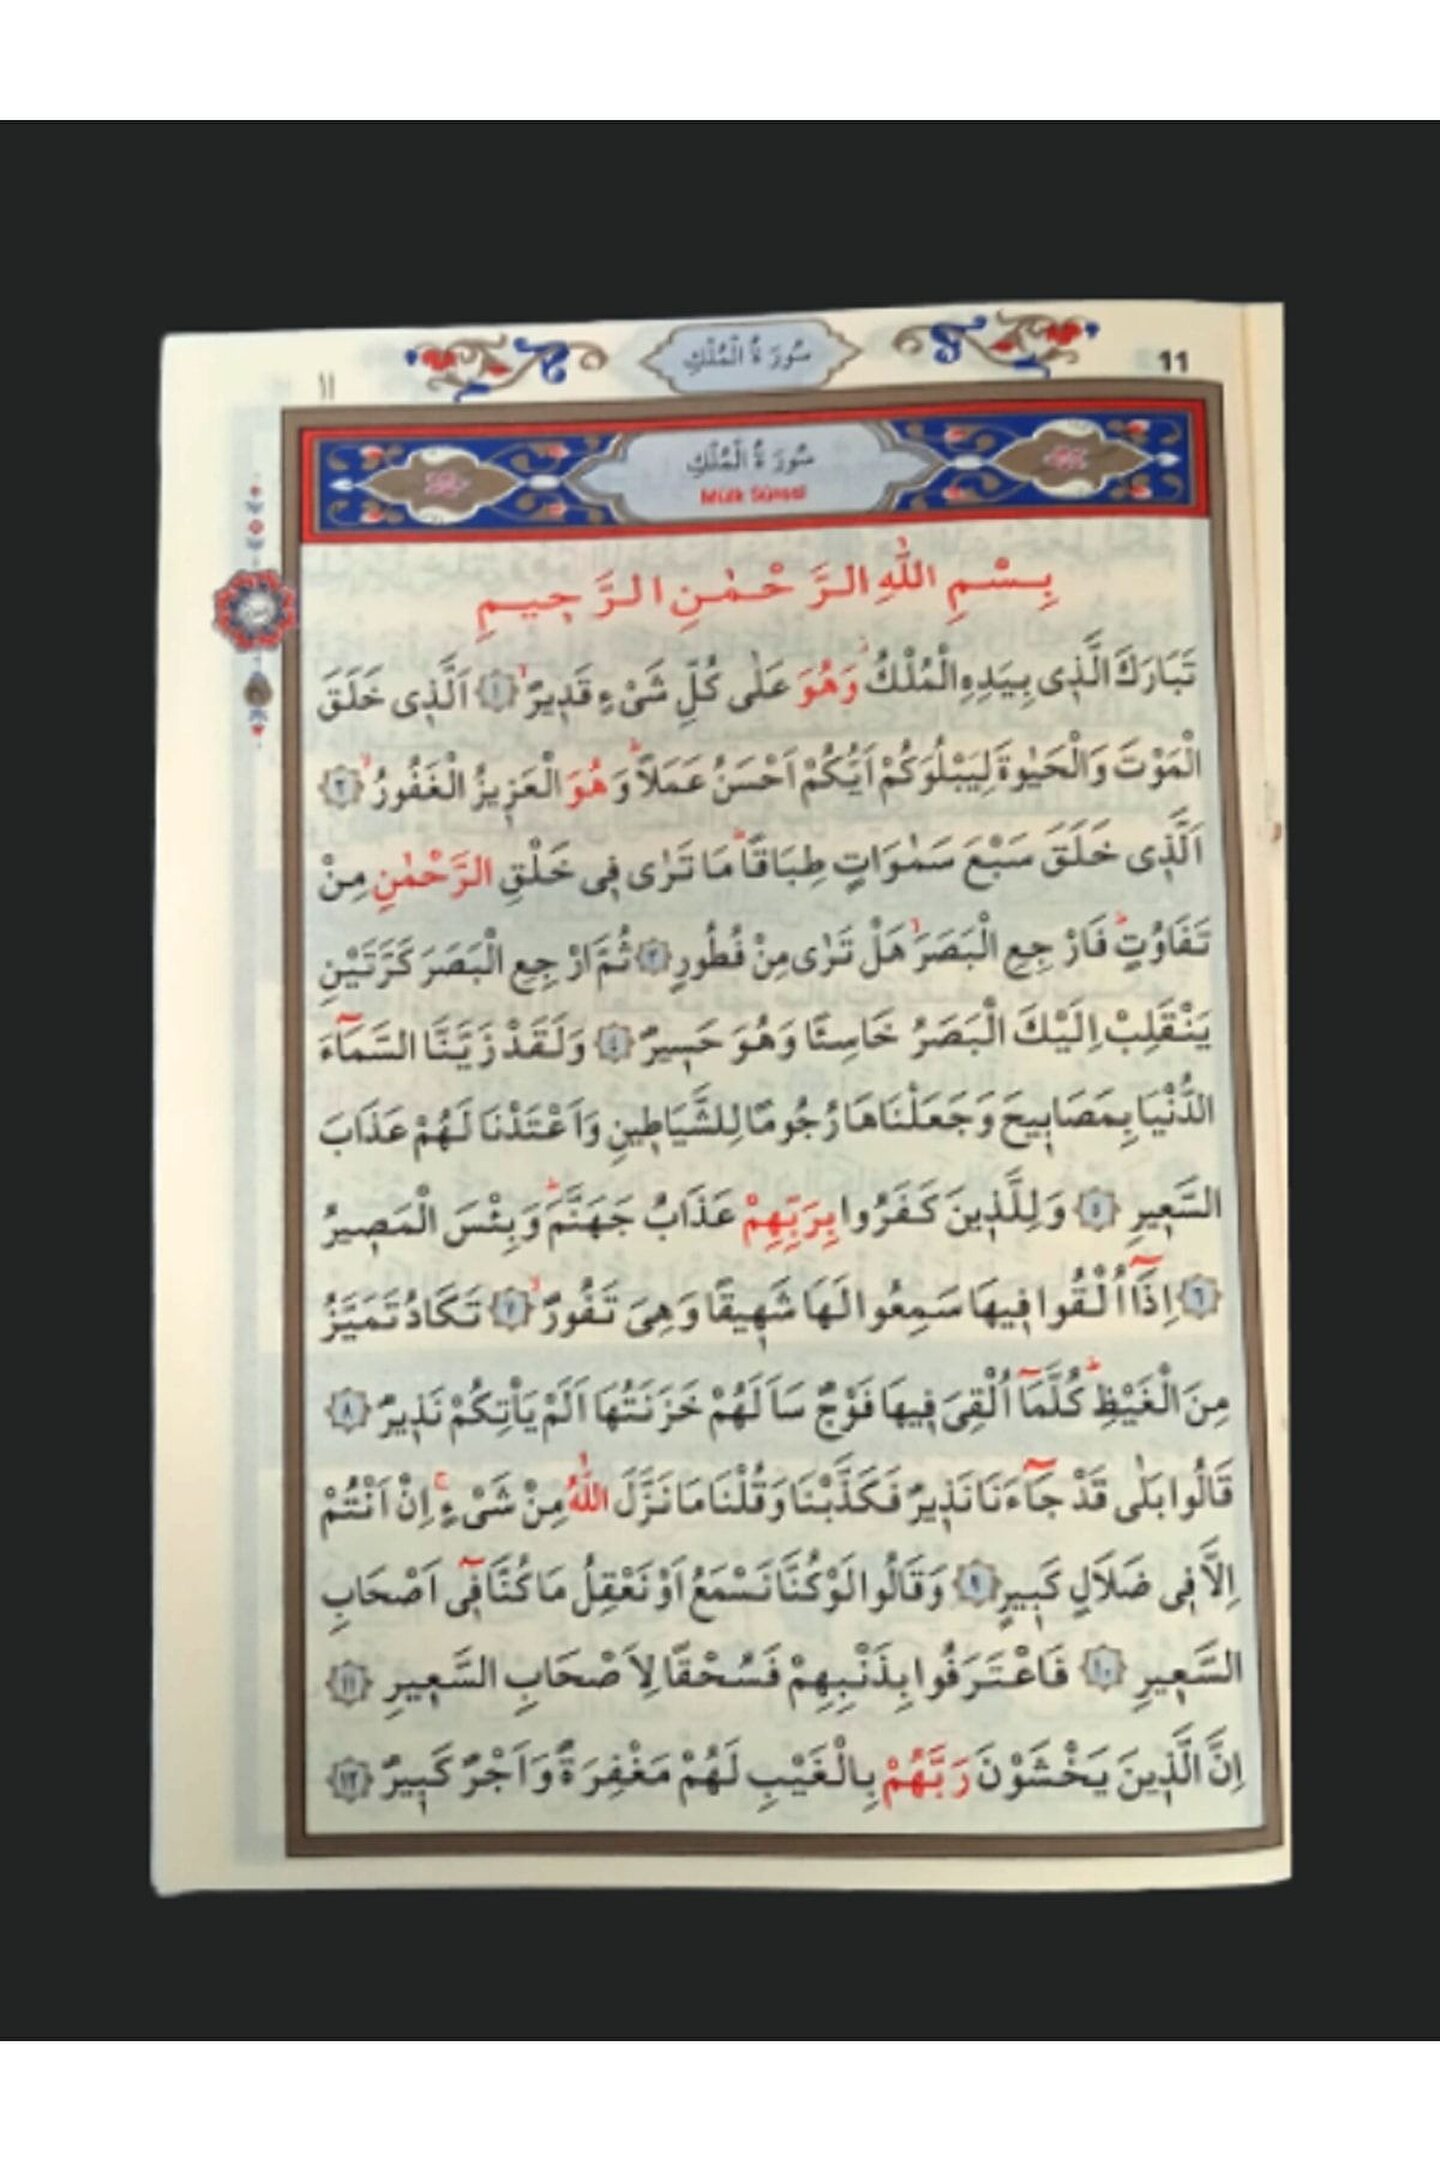 سُورَةُ الْمُلْكِ
11
١١
سُورَةُ الْمُلْكِ
Mülk Sûresi
بِسْمِ اللّٰهِ الرَّحْمٰنِ الرَّحِيمِ
تَبَارَكَ الَّذِى بِيَدِهِ الْمُلْكُ وَهُوَ عَلٰى كُلِّ شَىْءٍ قَدِيرٌ ﴿١﴾ اَلَّذِى خَلَقَ
الْمَوْتَ وَالْحَيٰوةَ لِيَبْلُوَكُمْ اَيُّكُمْ اَحْسَنُ عَمَلاًؕ وَهُوَ الْعَزِيزُ الْغَفُورُ ﴿٢﴾
اَلَّذِى خَلَقَ سَبْعَ سَمٰوَاتٍ طِبَاقًاؕ مَا تَرٰى فِى خَلْقِ الرَّحْمٰنِ مِنْ
تَفَاوُتٍؕ فَارْجِعِ الْبَصَرَ هَلْ تَرٰى مِنْ فُطُورٍ ﴿٣﴾ ثُمَّ ارْجِعِ الْبَصَرَ كَرَّتَيْنِ
يَنْقَلِبْ اِلَيْكَ الْبَصَرُ خَاسِئًا وَهُوَ حَسِيرٌ ﴿٤﴾ وَلَقَدْ زَيَّنَّا السَّمَٓاءَ
الدُّنْيَا بِمَصَابِيحَ وَجَعَلْنَاهَا رُجُومًا لِلشَّيَاطِينِ وَاَعْتَدْنَا لَهُمْ عَذَابَ
السَّعِيرِ ﴿٥﴾ وَلِلَّذِينَ كَفَرُوا بِرَبِّهِمْ عَذَابُ جَهَنَّمَؕ وَبِئْسَ الْمَصِيرُ
﴿٦﴾ اِذَٓا اُلْقُوا فِيهَا سَمِعُوا لَهَا شَهِيقًا وَهِىَ تَفُورُ ﴿٧﴾ تَكَادُ تَمَيَّزُ
مِنَ الْغَيْظِؕ كُلَّمَٓا اُلْقِىَ فِيهَا فَوْجٌ سَاَلَهُمْ خَزَنَتُهَا اَلَمْ يَاْتِكُمْ نَذِيرٌ ﴿٨﴾
قَالُوا بَلٰى قَدْ جَٓاءَنَا نَذِيرٌ فَكَذَّبْنَا وَقُلْنَا مَا نَزَّلَ اللّٰهُ مِنْ شَىْءٍۚ اِنْ اَنْتُمْ
اِلاَّ فِى ضَلاَلٍ كَبِيرٍ ﴿٩﴾ وَقَالُوا لَوْ كُنَّا نَسْمَعُ اَوْ نَعْقِلُ مَا كُنَّا فِٓى اَصْحَابِ
السَّعِيرِ ﴿١٠﴾ فَاعْتَرَفُوا بِذَنْبِهِمْ فَسُحْقًا لِاَصْحَابِ السَّعِيرِ ﴿١١﴾
اِنَّ الَّذِينَ يَخْشَوْنَ رَبَّهُمْ بِالْغَيْبِ لَهُمْ مَغْفِرَةٌ وَاَجْرٌ كَبِيرٌ ﴿١٢﴾